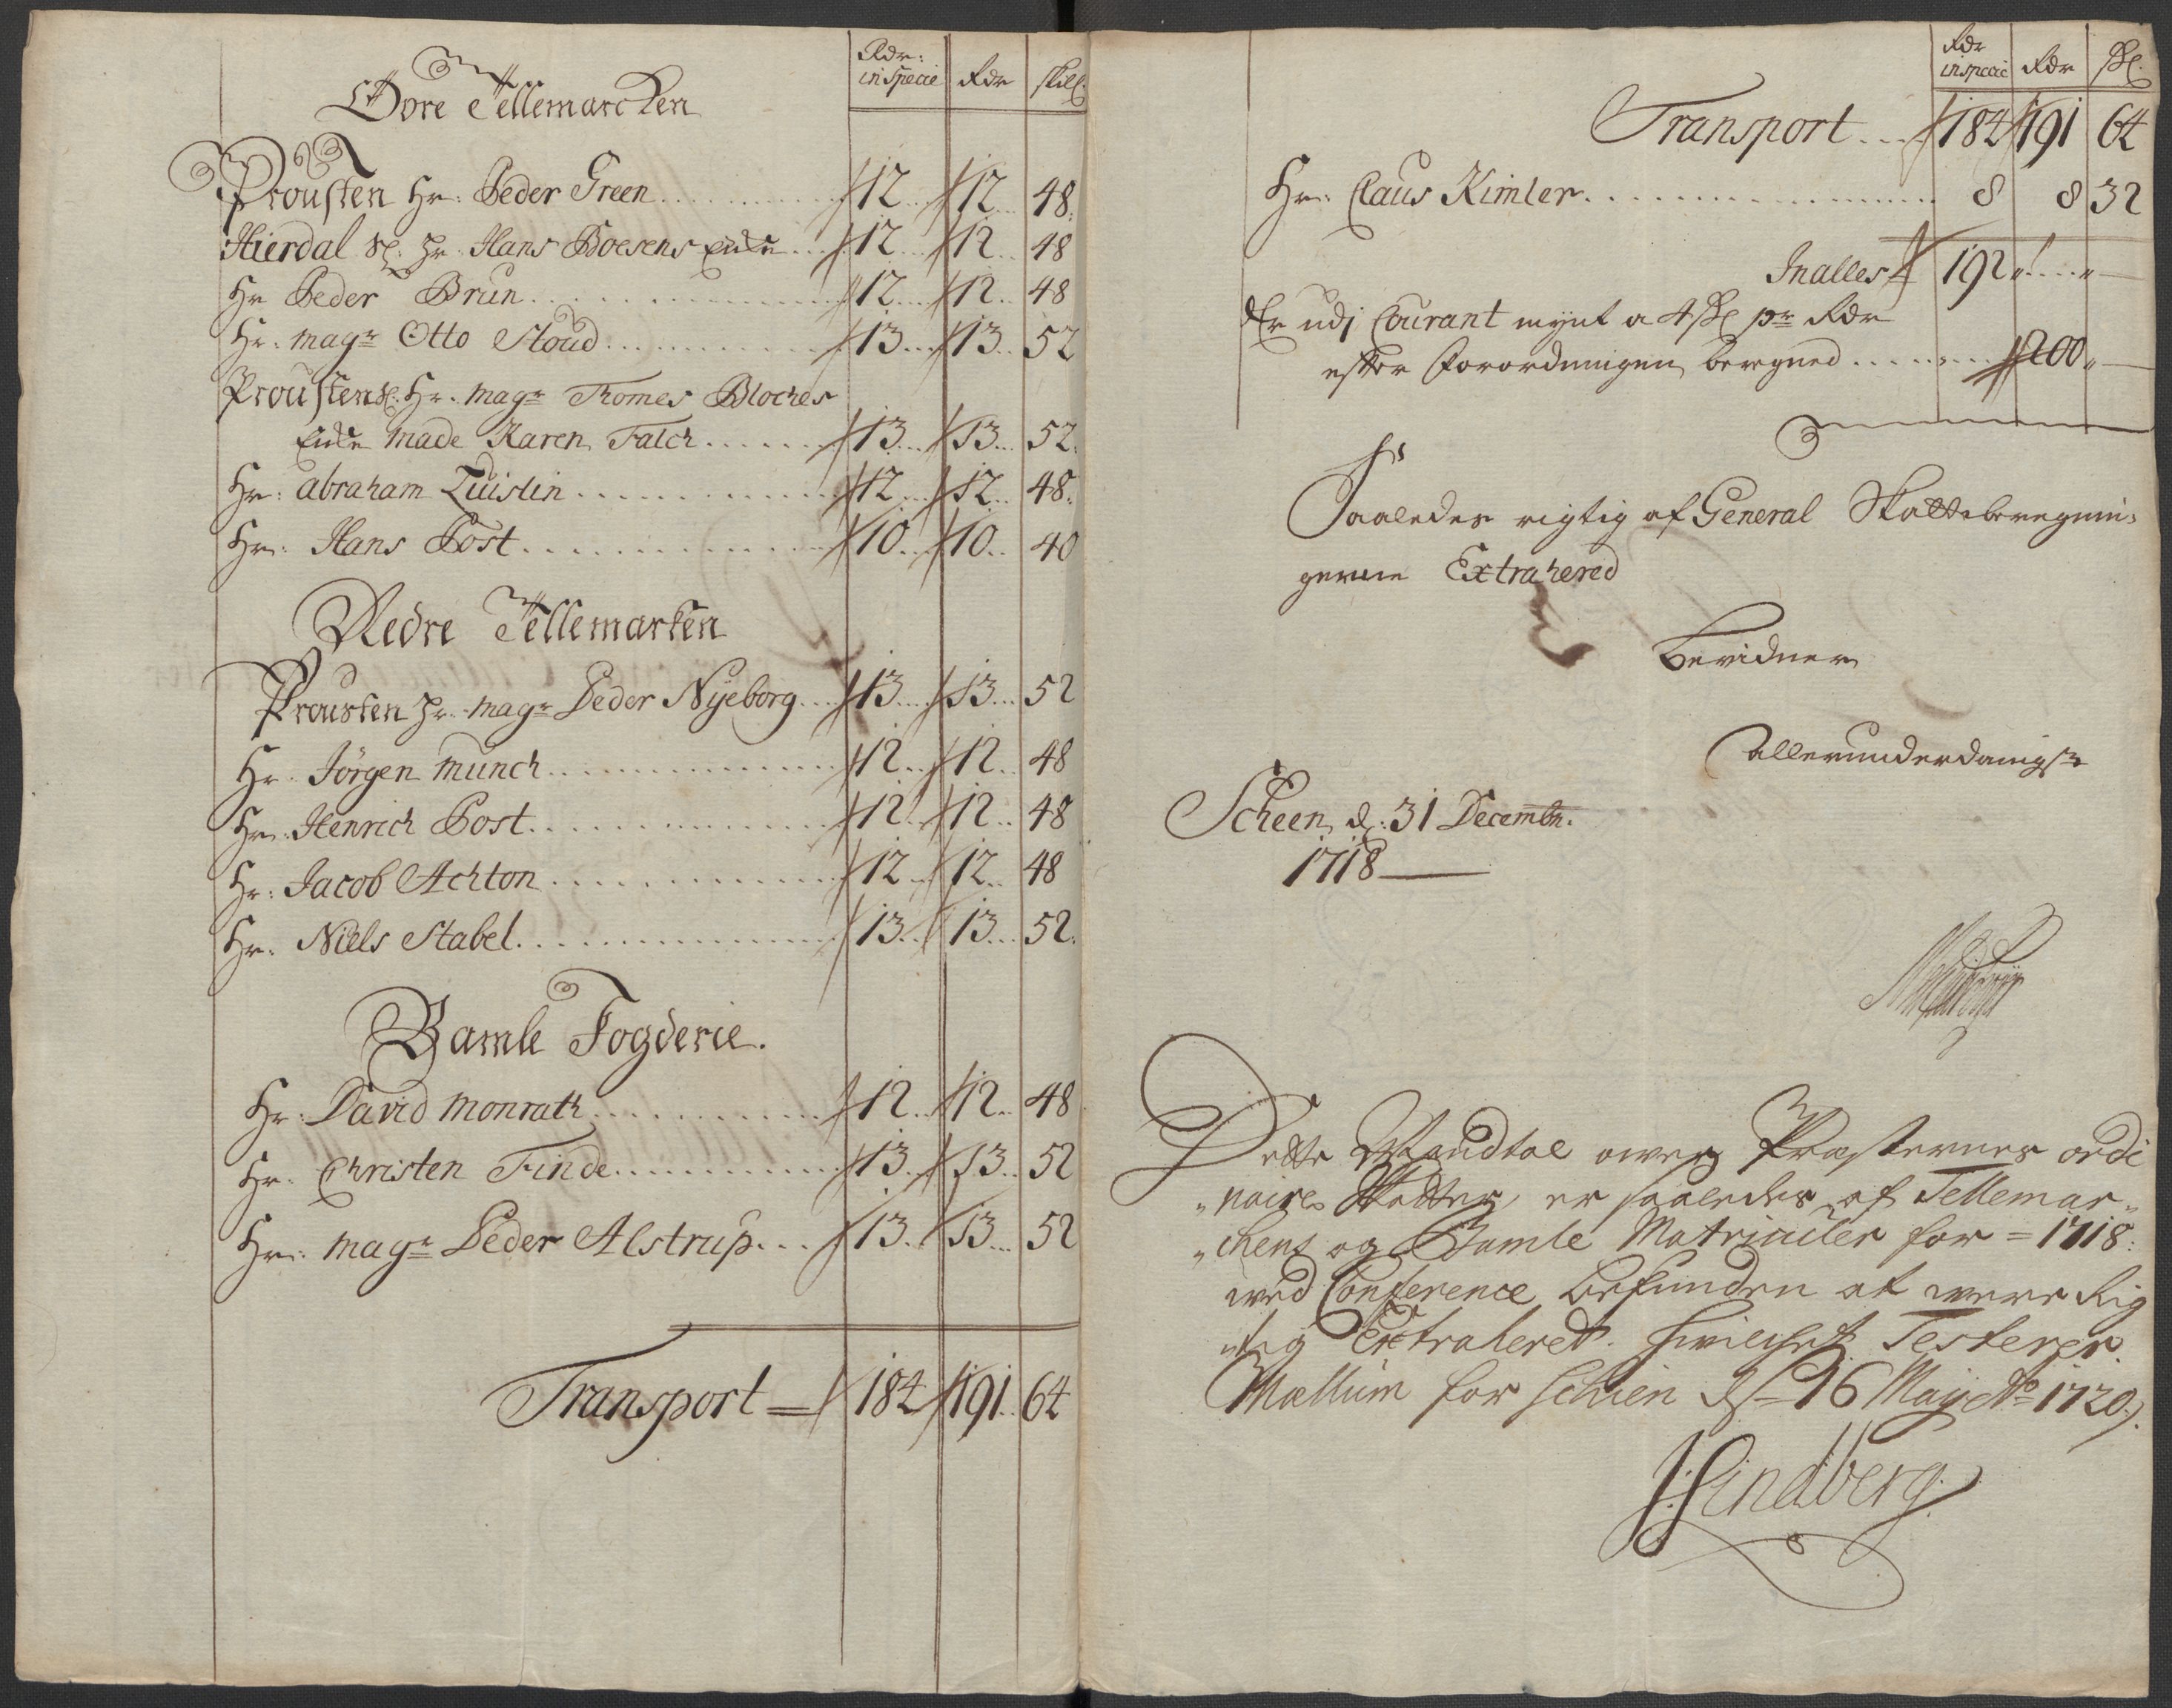 Rdr: in Specie Rdr skill:
Øvre Tellemarcken
Prousten Hr: Peder Green 12 12 48
Hierdal Sl: Hr. Hans Boesens Encke 12 12 48
Hr Peder Brun 12 12 48
Hr. magr Otto Stoud 13 13 52
Prousten Sl: Hr. magr Thomes Bloches
Encke made Karen Falch 13 13 52
Hr: abraham Quislin 12 12 48
Hr: Hans Post 10 10 40
Nedre Tellemarken
Prousten Hr. magr Peder Nyeborg 13 13 52
Hr. Jörgen munch 12 12 48
Hr: Henrich Post 12 12 48
Hr: Jacob Achton 12 12 48
Hr. Niels Stabel 13 13 52
Bamle Fogderie.
Hr: David monrath 12 12 48
Hr. Christen Finde 13 13 52
Hr: magr Peder Alstrup 13 13 52
Transport 184 191 64
Rdr in specie Rdr skl.
Transport 184 191 64
Hr: Claus Kimler 8 8 32
Inalles 192
Er udj Courant mynt a 4 skl pr Rdr
efter Forordningen beregned 200
Saaledes rigtig af General Skattebereignin:
gerne Extrahered
Bevidner
allerunderdanigst
Scheen d: 31 Decembr.
1718
Dette Mandtal over Præsternes ordi
naire Skatter, er saaledes af Tellemar-
chens og Bamle Matriculer for 1718:
wed Conference befunden at were Rig
tig Extraheret. Hvilchet Testerer.
Mællum for Schien d 16 Maij Ao 1720.
Lindberg.